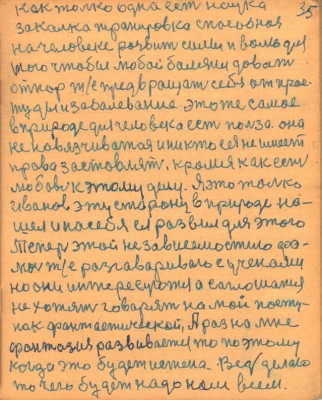 35
как только одна ест наука
закалка транировка способная
на человеке розвит сили и волю для
того чтобы любой болезни довать
отпор т/е предвращат себя от прос-
туды и заболевание. это же самое
в природе для человека ест полза. она
не навязчивая и никто ея не имеет
права заставлят, кромя как сст
любов к этому делу. Я это толко
Иванов эту сторону в природе на-
шел и на себя ея развил для этого
Тепер этой независемостю фор-
мы т/е разгавариваю с учеными
но они интересуются а соглошатя
не хотят говорят на мой посту-
пак фантастической, А раз на мне
фантазия развивается то по этому
когда это будет истена. Вед/ делаю
то чего будет надо нам всем.